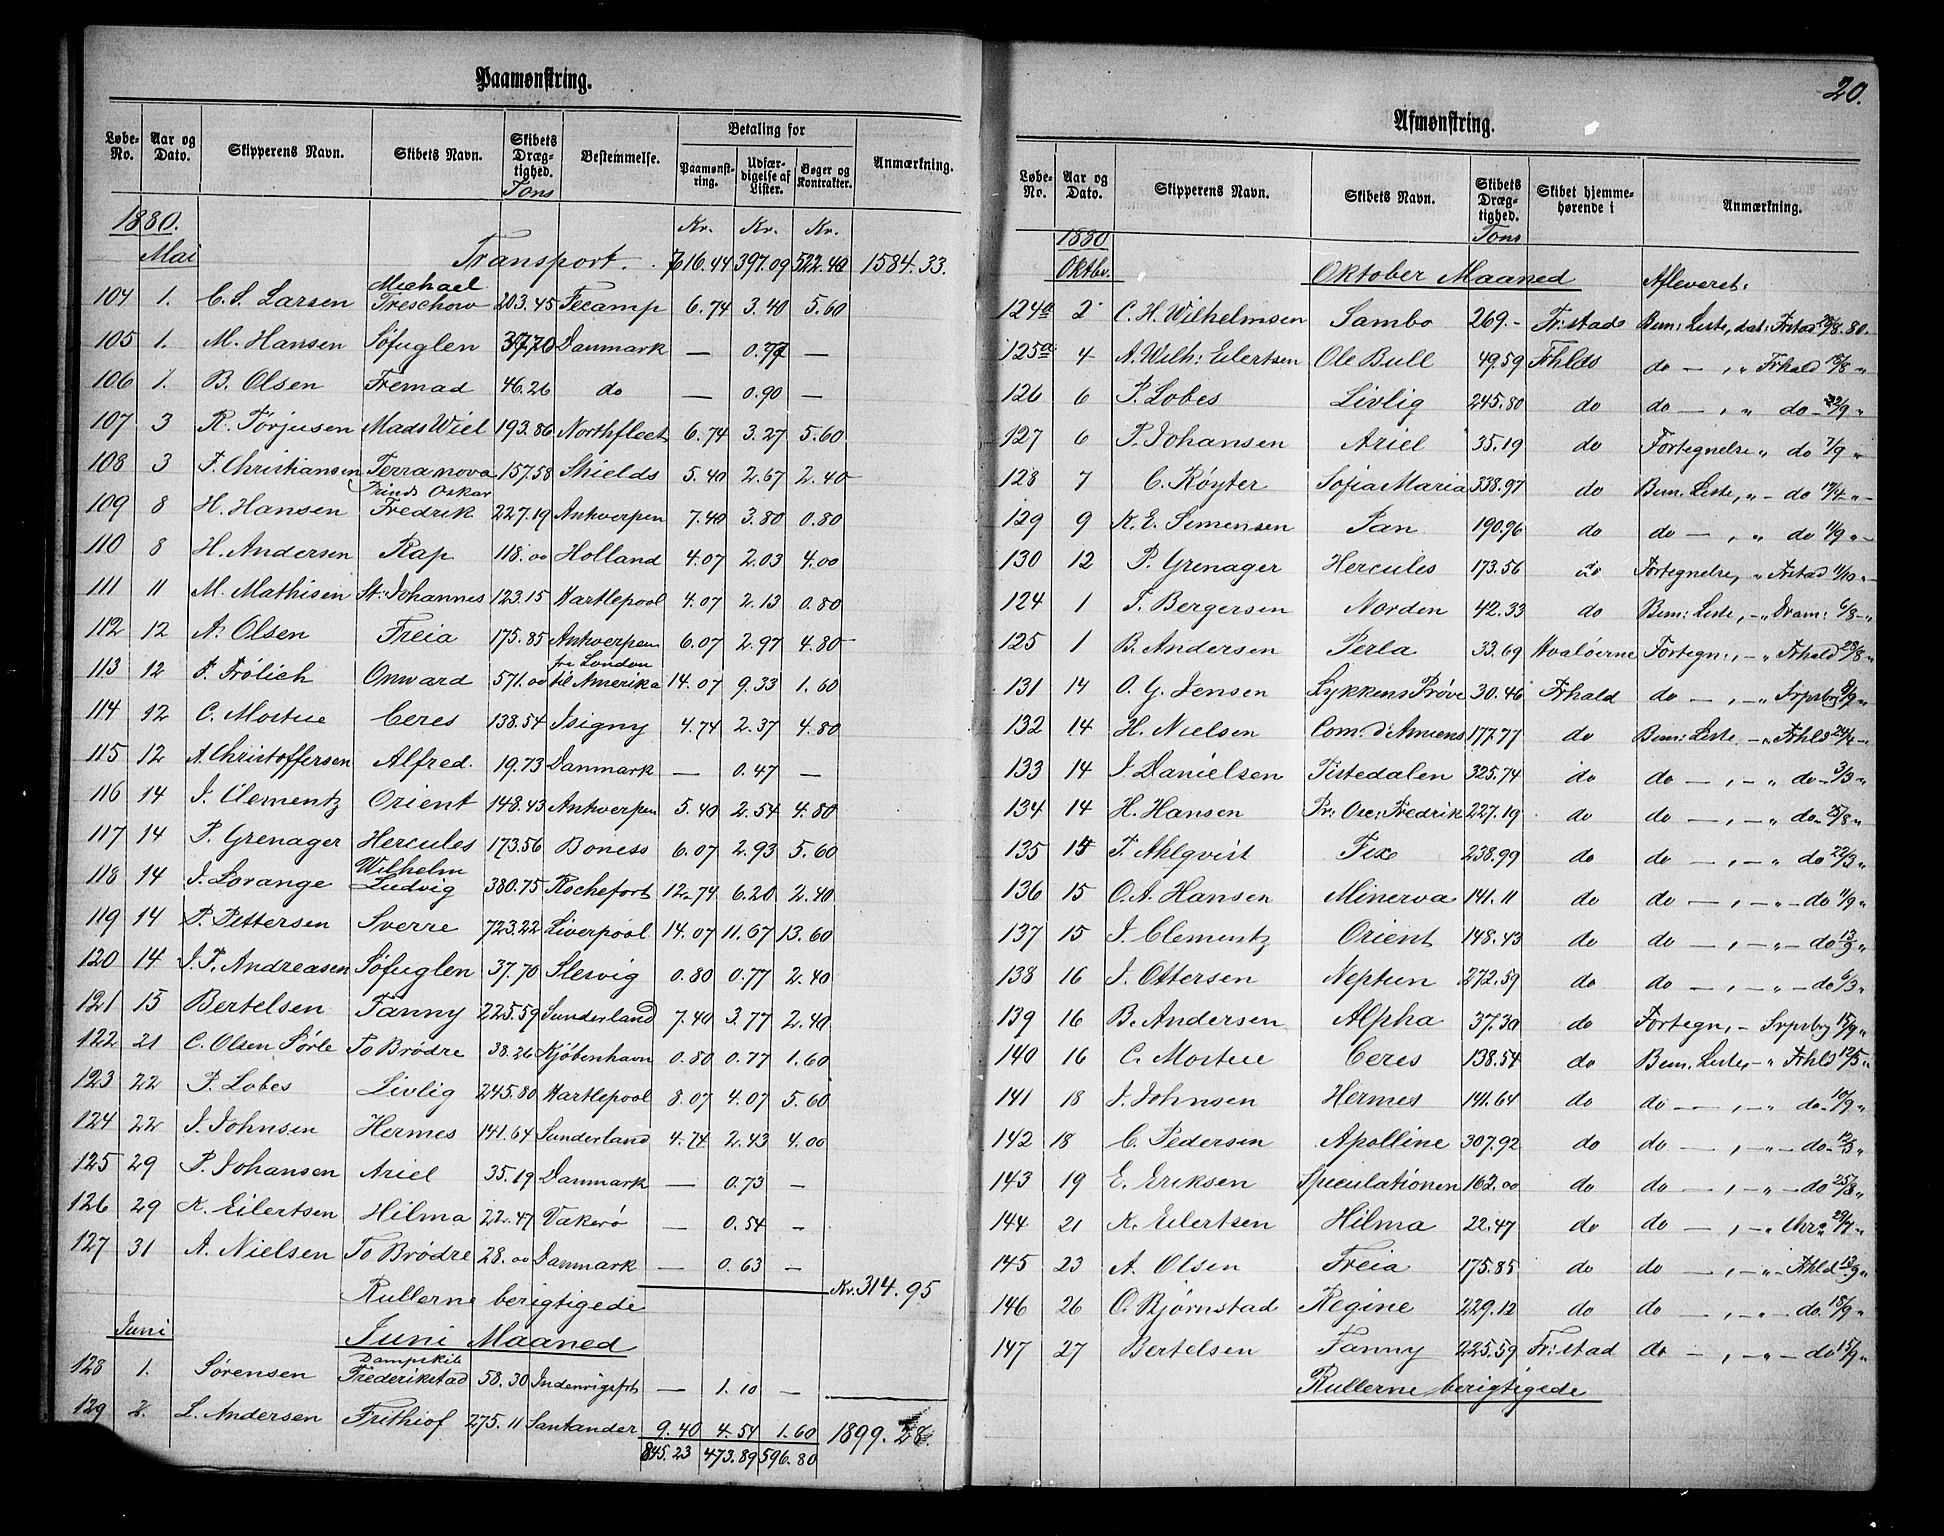 Paamønstring.
Løbe-No. Aar og Dato. Skipperens Navn. Skibets Navn. Skibets Dræg-tighed. Tons Bestemmelse. Betaling for Paamønst-ring. Udfær-digelse af Lister. Bøger og Kontrakter. Anmærkning.
1880. Kr. Kr. Kr.
Mai Transport. 716.44 397.09 522.40 1584.33.
104 1. C. S. Larsen Michael Treschow 203.45 Fecamp 6.74 3.40 5.60
105 1. M. Hansen Søfuglen 37.70 Danmark — 0.77 —
106 1. B. Olsen Fremad 46.26 do — 0.90 —
107 3 R. Tørjusen Mads Wiel 193.86 Northfleet 6.74 3.27 5.60
108 3 F. Christiansen Terranova 157.58 Shields 5.40 2.67 2.40
109 8 H. Hansen Prinds Oskar Fredrik 227.19 Antverpen 7.40 3.80 0.80
110 8 H. Andersen Rap 118.00 Holland 4.07 2.03 4.00
111 11 M. Mathisen St. Johannes 123.15 Hartlepool 4.07 2.13 0.80
112 12 A. Olsen Freia 175.85 Antverpen 6.07 2.97 4.80
113 12 F. Frölich Onward 571.00 fra London til Amerika 14.07 9.33 1.60
114 12 C. Mostue Ceres 138.54 Isigny 4.74 2.37 4.80
115 12 A. Christoffersen Alfred. 19.73 Danmark — 0.47 —
116 14 J. Clementz Orient 148.43 Antverpen 5.40 2.54 4.80
117 14 P. Grenager Hercules 173.56 Boness 6.07 2.93 5.60
118 14 J. Lorange Wilhelm Ludvig 380.75 Rochefort 12.74 6.20 2.40
119 14 P. Pettersen Sverre 723.22 Liverpool 14.07 11.67 13.60
120 14 J. P. Andreasen Søfuglen 37.70 Slesvig 0.80 0.77 2.40
121 15 Bertelsen Fanny 225.59 Sunderland 7.40 3.77 2.40
122 21 C. Olsen Sørle To Brødre 38.26 Kjøbenhavn 0.80 0.77 1.60
123 22 P. Lobes Livlig 245.80 Hartlepool 8.07 4.07 5.60
124 22 J. Johnsen Hermes 141.64 Sunderland 4.74 2.43 4.00
125 29 P. Johansen Ariel 35.19 Danmark — 0.73 —
126 29 K. Eilertsen Hilma 22.47 Vækerø — 0.54 —
127 31 A. Nielsen To Brødre 28.00 Danmark — 0.63 —
Kr. 314.95
Rullerne berigtigede
Juni Juni Maaned
128 1. Sørensen Dampskib Frederikstad 58.30 — 1.10 —
129 2. L. Andersen Frithiof 275.11 Santander 9.40 4.54 1.60 1899.28.
845.23 473.89 596.80
20.
Afmønstring.
Løbe-No. Aar og Dato. Skipperens Navn. Skibets Navn. Skibets Dræg-tighed. Tons Skibet hjemme-hørende i Anmærkning.
1880
Oktbr. Oktober Maaned Afleveret:
124a 2 C. H. Wilhelmsen Sambo 269.- Fr:stad Bem: Liste, dat: Frstad 28/8. 80.
125a 4 A. Wilh: Eilertsen Ole Bull 49.59 Frhld do — , „ Frhald 18/8 „
126 6 P. Lobes Livlig 245.80 do do — , „ do 22/9 „
127 6 P. Johansen Ariel 35.19 do Fortegnelse „ do 7/9 „
128 7 C. Røyter Sofia Maria 338.97 do Bem. Liste, „ do 17/4 „
129 9 K. E. Simensen Pan 190.96 do do — , „ do 11/9 „
130 12 P. Grenager Hercules 173.56 do Fortegnelse, „ Frstad 11/10 „
124 1 F. Bergersen Norden 42.33 do Bem: Liste, „ Dram: 6/8 „
125 1 B. Andersen Perla 33.69 Hvaløerne Fortegn:, „ Frhald 23/8 „
131 14 O. G. Jensen Lykkens Prøve 30.46 Frhald do — , „ Srpsbrg 8/9 „
132 14 H. Nielsen Com. d'Amiens 177.77 do Bem: Liste „ Frhld 24/4 „
133 14 J. Danielsen Tistedalen 325.74 do do — , „ do 3/3 „
134 14 H. Hansen Pr: Osc: Fredrik 227.19 do do — , „ do 25/8 „
135 15 T. Ahlqvist Fix 238.99 do do — , „ do 22/3 „
136 15 O. A. Hansen Minerva 141.11 do do — , „ do 11/9 „
137 15 J. Clementz Orient 148.43 do do — , „ do 13/9 „
138 16 J. Ottersen Neptun 272.59 do do — , „ do 6/3 „
139 16 B. Andersen Alpha 37.30 do Fortegn, Srpsbrg 15/9 „
140 16 C. Mostue Ceres 138.54 do Bem. Liste, „ Frhld 12/5 „
141 18 J. Johnsen Hermes 141.64 do do — , „ do 10/9 „
142 18 C. Pedersen Apolline 307.92 do do — , „ do 12/5 „
143 19 E. Eriksen Speculationen 162.00 do do — , „ do 25/8 „
144 21 K. Eilertsen Hilma 22.47 do do — , „ Chra 29/7 „
145 23 A. Olsen Freia 175.85 do do — , „ Frhld 13/9 „
146 26 O. Bjørnstad Regine 229.12 do do — , „ do. 18/9 „
147 27 Bertelsen Fanny 225.59 Fr:stad do — , „ do 15/9 „
Rullerne berigtigede